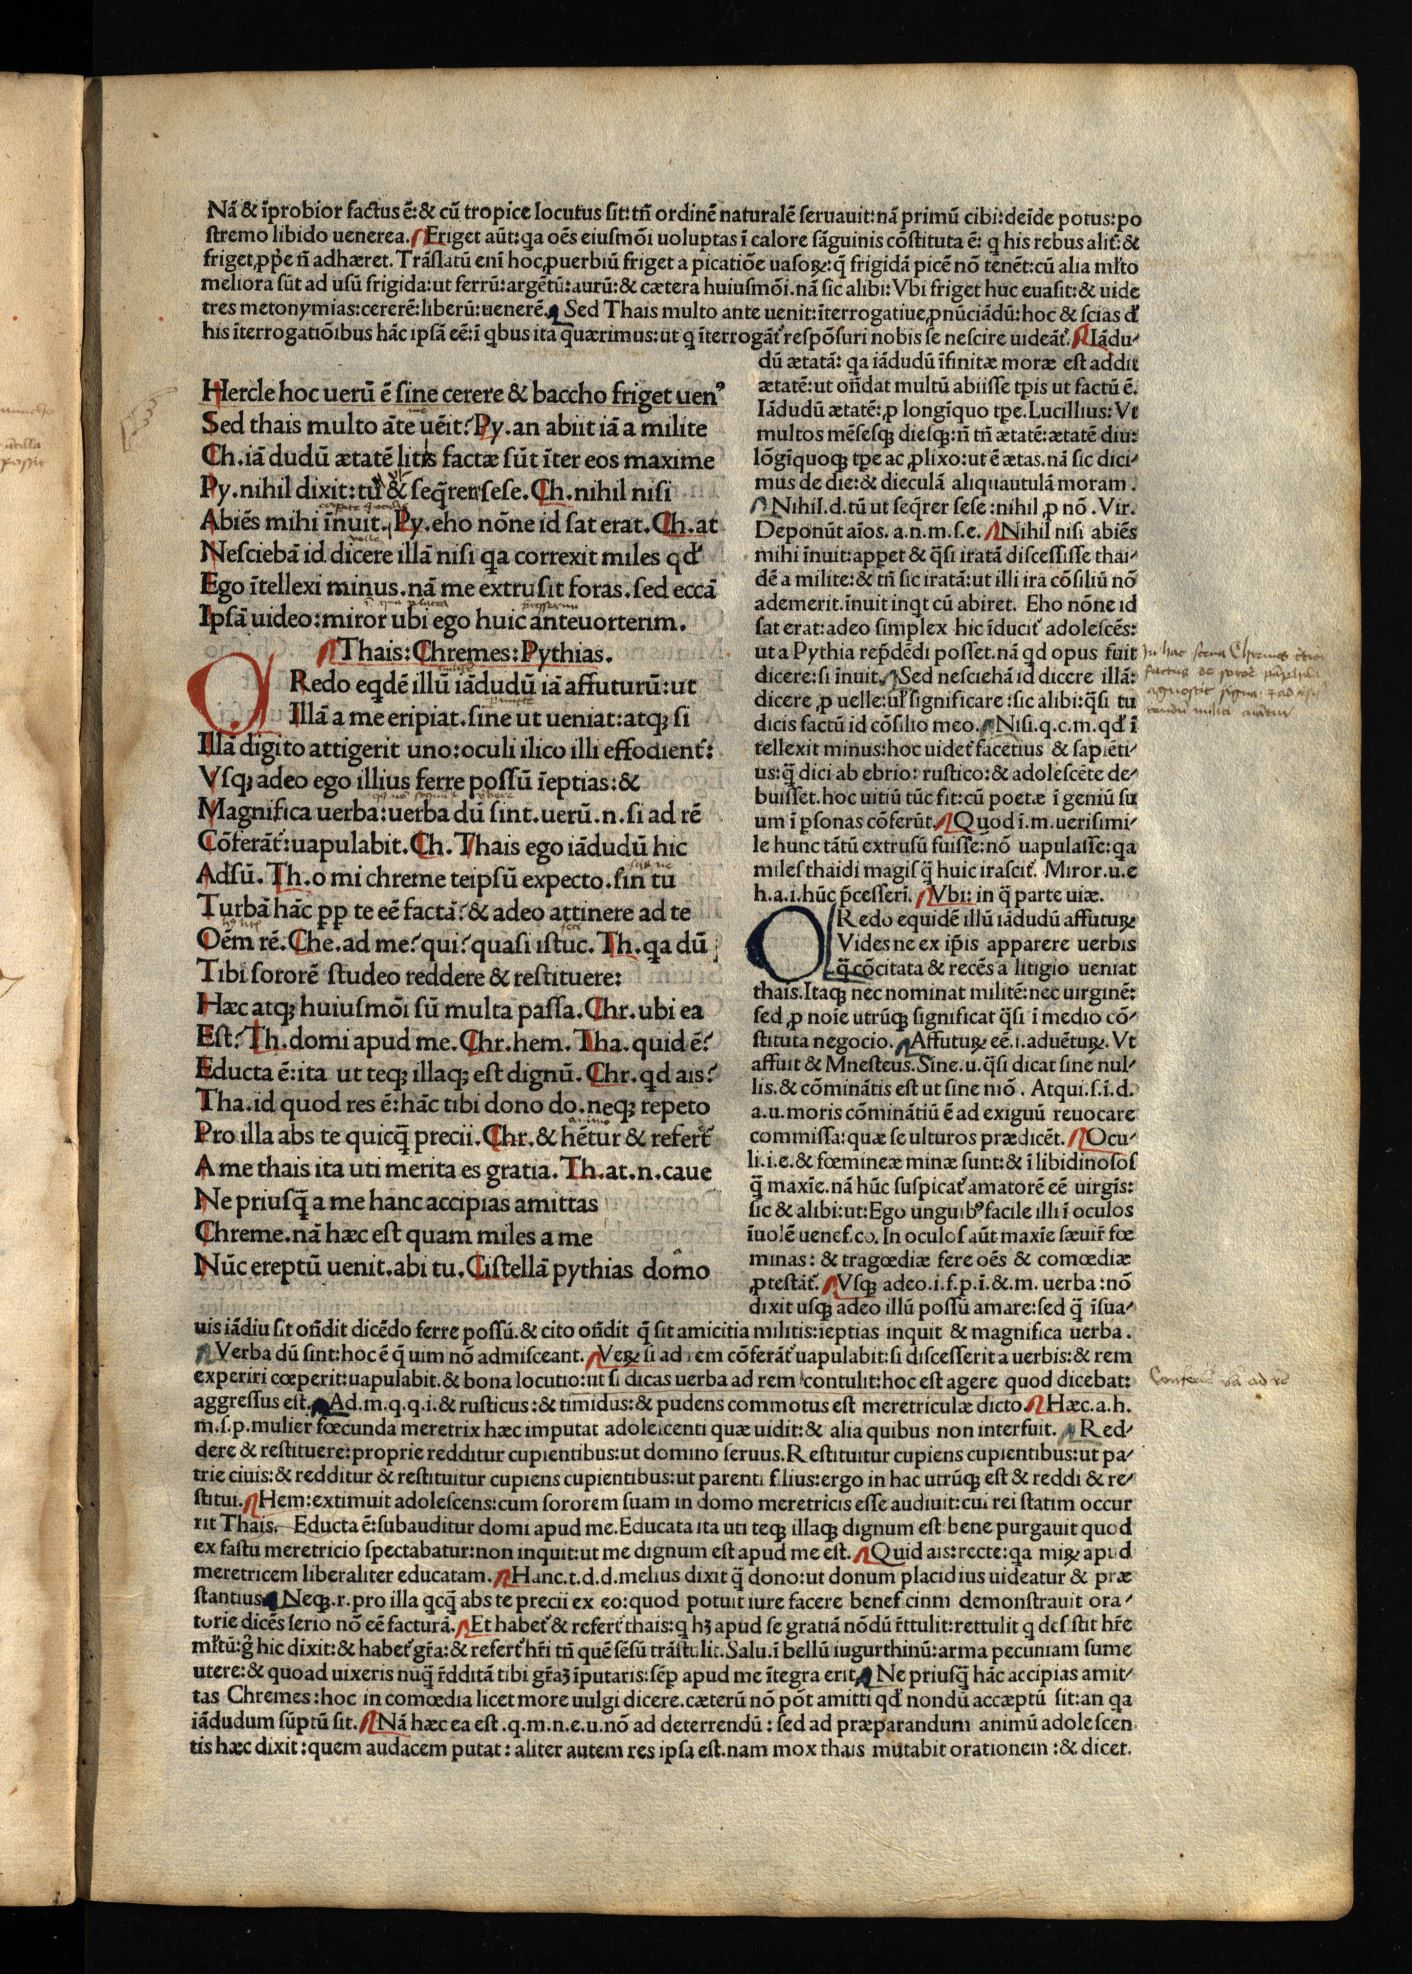 Nā & īprobior factus ē:& cū tropice locutus sit:tñ ordinē naturalē seruauit:nā primū cibi:deīde potus:po
stremo libido uenerea.Friget aūt:qa oēs eiusmōi uoluptas ī calore sāguinis cōstituta ē: q his rebus alit̄:&
friget,ꝓp̱e ñ adhæret. Trāslatū enī hoc ꝓuerbiū friget a picatiōe uasoꝝ:q̄ frigidā picē nō tenēt:cū alia ml̄to
meliora sūt ad usū frigida:ut ferrū:argētū:aurū:& cætera huiusmōi.nā sic alibi:Vbi friget huc euasit:& uide
tres metonymias:cererē:liberū:uenerē. Sed Thais multo ante uenit:īterrogatiue,ꝓnūciādū:hoc & scias đ
his īterrogatiōibus hāc ipsā eē:ī qbus ita quærimus:ut q īterrogāt̄ respōsuri nobis se nescire uideāt̄. Iādu-
Hercle hoc uerū ē sine cerere & baccho friget uenꝰ
Sed thais multo āte uēit?Py.an abiit iā a milite
Ch.iā dudū ætatē litis factæ sūt īter eos maxime
Py.nihil dixit:tū & seq̄rer sese.Ch.nihil nisi
Abiēs mihi īnuit.Py.eho nōne id sat erat.Ch.at
Nesciebā id dicere illā nisi qa correxit miles qđ
Ego ītellexi minus.nā me extrusit foras.sed eccā
Ipsā uideo:miror ubi ego huic anteuorterim.
Thais:Chremes:Pythias.
CRedo eqdē illū iādudū iā affuturū:ut
Illā a me eripiat.sine ut ueniat:atqꝫ si
Illā digito attigerit uno:oculi ilico illi effodient̄:
Vsqꝫ adeo ego illius ferre possū īeptias:&
Magnifica uerba:uerba dū sint.uerū.n.si ad rē
Cōferāt̄:uapulabit.Ch.Thais ego iādudū hic
Adsū.Th.o mi chreme teipsū expecto.sin tu
Turbā hāc pp te eē factā?& adeo attinere ad te
Oēm rē.Che.ad me?qui?quasi istuc.Th.qa dū
Tibi sororē studeo reddere & restituere:
Hæc atqꝫ huiusmōi sū multa passa.Chr.ubi ea
Est?Th.domi apud me.Chr.hem.Tha.quid ē?
Educta ē:ita ut teqꝫ illaqꝫ est dignū.Chr.qd ais?
Tha.id quod res ē:hāc tibi dono do.neqꝫ repeto
Pro illa abs te quicq̄ precii.Chr.& hētur & refert̄
A me thais ita uti merita es gratia.Th.at.n.caue
Ne priusq̄ a me hanc accipias amittas
Chreme.nā hæc est quam miles a me
Nūc ereptū uenit.abi tu.Cistellā pythias domo
dū ætatā: qa iādudū īfinitæ moræ est addit
ætatē:ut oñdat multū abiisse tp̱is ut factū ē.
Iādudū ætatē:ꝓ longīquo tp̱e.Lucillius:Vt
multos mēsesqꝫ diesqꝫ:ñ tñ ætatē:ætatē diu:
lōgīquoqꝫ tp̱e ac ꝓlixo:ut ē ætas.nā sic dici-
mus de die:& dieculā aliquautulā moram.
Nihil.d.tū ut seq̄rer sese:nihil ꝓ nō.Vir.
Deponūt aīos.a.n.m.s.e. Nihil nisi abiēs
mihi īnuit:app̱et & q̄si iratā discessisse thai-
dē a milite:& tñ sic iratā:ut illi ira cōsiliū nō
ademerit.īnuit inqt cū abiret. Eho nōne id
sat erat:adeo simplex hic īducit̄ adolescēs:
ut a Pythia rep̄dēdi posset.nā qd opus fuit
dicere:si īnuit. Sed nesciehā id dicere illā:
dicere ꝓ uelle:ul̄ significare:sic alibi:q̄si tu
dicis factū id cōsilio meo. Nisi.q.c.m.qđ ī
tellexit minus:hoc uidet̄ facetius & sapiēti-
us:q̄ dici ab ebrio: rustico:& adolescēte de-
buisset.hoc uitiū tūc fit:cū poetæ ī geniū su
um ī p̱sonas cōferūt. Quod ī.m.uerisimi-
le hunc tātū extrusū fuisse:nō uapulasse:qa
miles thaidi magis q̄ huic irascit̄. Miror.u.e
h.a.i.hūc p̄cesserī. Vbi: in q̄ parte uiæ.
CRedo equidē illū iādudū affuturꝝ
Vides ne ex ip̄is apparere uerbis
q̄ cōcitata & recēs a litigio ueniat
thais.Itaqꝫ nec nominat militē:nec uirginē:
sed ꝓ noīe utrūqꝫ significat q̄si ī medio cō-
stituta negocio. Affuturꝝ eē.i.aduēturꝝ.Vt
affuit & Mnesteus.Sine.u.q̄si dicat sine nul-
lis.& cōminātis est ut sine mō. Atqui.s.i.d.
a.u.moris cōminātiū ē ad exiguū reuocare
commissa:quæ se ulturos prædicēt. Ocu-
li.i.e.& fœmineæ minæ sunt:& ī libidinosos
q̄ maxīe.nā hūc suspicat̄ amatorē eē uirgīs:
sic & alibi:ut:Ego unguibꝰ facile illi ī oculos
īuolē uenef.co.In oculos aūt maxīe sæuir̄ fœ
minas: & tragœdiæ fere oēs & comœdiæ
ꝓtestāt̄. Vsqꝫ adeo.i.f.p.ī.&.m. uerba:nō
dixit usqꝫ adeo illū possū amare:sed q̄ īsua-
uis iādiu sit oñdit dicēdo ferre possū.& cito oñdit q̄ sit amicitia militis:ieptias inquit & magnifica uerba.
Verba dū sint:hoc ē q̄ uim nō admisceant. Veꝝ si ad rem cōferāt̄ uapulabit:si discesserit a uerbis:& rem
experiri cœperit:uapulabit.& bona locutio:ut si dicas uerba ad rem contulit:hoc est agere quod dicebat:
aggressus est. Ad.m.q.q.i.& rusticus:& timidus:& pudens commotus est meretriculæ dicto. Hæc.a.h.
m.s.p.mulier fœcunda meretrix hæc imputat adolescenti quæ uidit:& alia quibus non interfuit. Red-
dere & restituere:proprie redditur cupientibus:ut domino seruus.Restituitur cupiens cupientibus:ut pa-
trie ciuis:& redditur & restituitur cupiens cupientibus:ut parenti f.lius:ergo in hac utrūqꝫ est & reddi & re-
stitui. Hem:extimuit adolescens:cum sororem suam in domo meretricis esse audiuit:cui rei statim occur
rit Thais. Educta ē:subauditur domi apud me.Educata ita uti teqꝫ illaqꝫ dignum est bene purgauit quod
ex fastu meretricio spectabatur:non inquit:ut me dignum est apud me est. Quid ais:recte:qa miꝝ apud
meretricem liberaliter educatam. Hanc.t.d.d.melius dixit q̄ dono:ut donum placidius uideatur & præ
stantius. Neqꝫ.r.pro illa qcq̄ abs te precii ex eo:quod potuit iure facere benef cinm demonstrauit ora-
torie dicēs serio nō eē facturā. Et habet̄ & refert̄ thais:q hꝫ apud se gratiā nōdū r̄ttulit:rettulit q des stit hr̄e
ml̄tū:g̊ hic dixit:& habet̄ gr̄a:& refert̄ hr̄i tñ quē sēsū trāstulit.Salu.ī bellū iugurthinū:arma pecuniam sume
utere:& quoad uixeris nūq̄ r̄dditā tibi gr̄aꝫ īputaris:sēp̱ apud me ītegra erit. Ne priusq̄ hāc accipias amit-
tas Chremes:hoc in comœdia licet more uulgi dicere.cæterū nō pōt amitti qđ nondū accæptū sit:an qa
iādudum sūptū sit. Nā hæc ea est.q.m.n.e.u.nō ad deterrendū: sed ad præparandum animū adolescen
tis hæc dixit:quem audacem putat: aliter autem res ipsa est.nam mox thais mutabit orationem:& dicet.